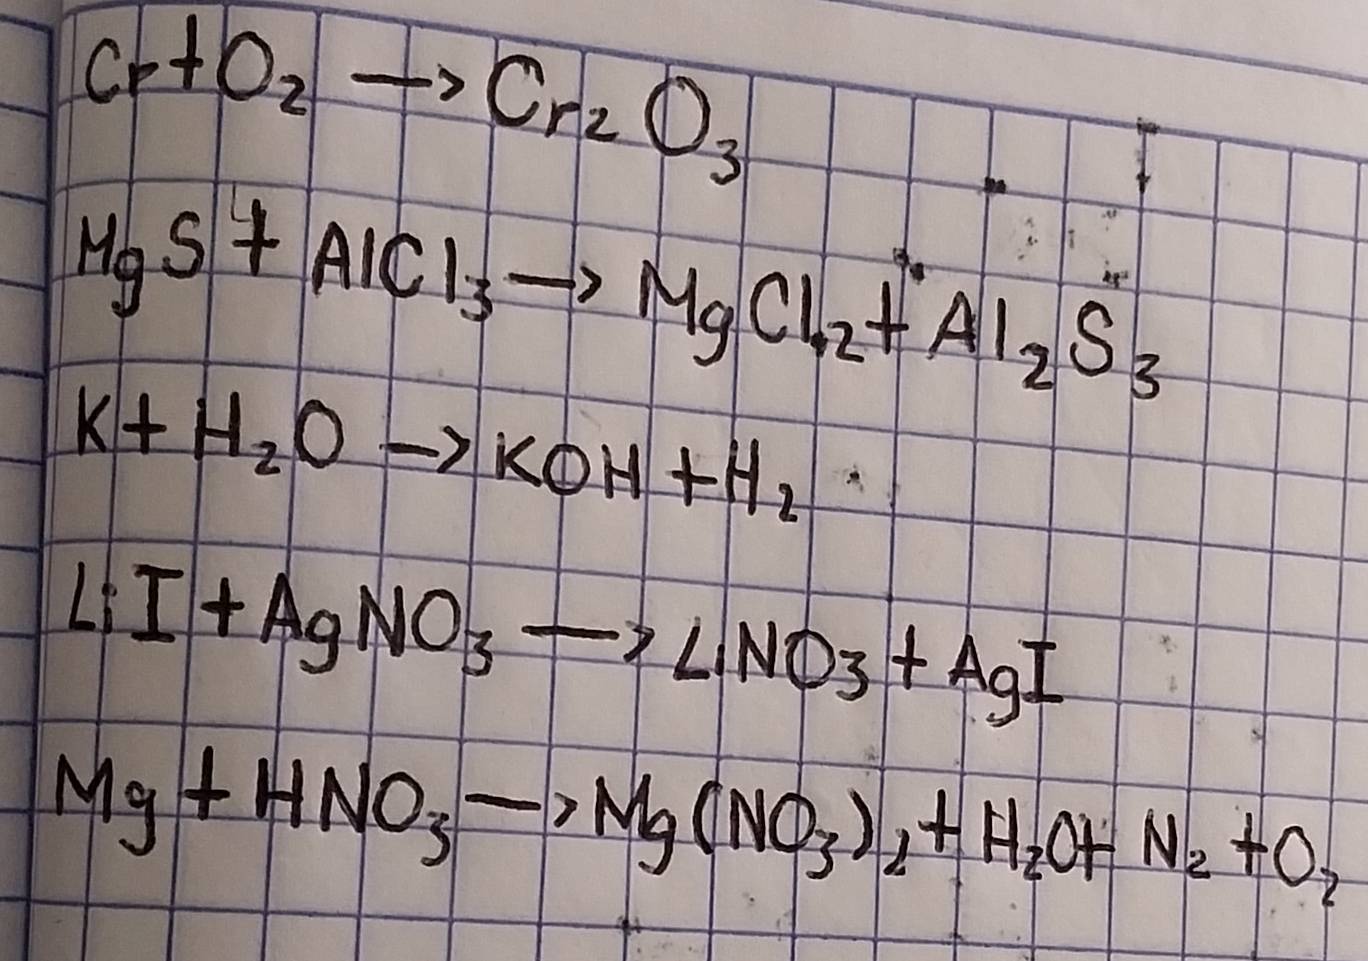 Cr + O₂ → Cr₂O₃
MgS + AlCl₃ → MgCl₂ + Al₂S₃
K + H₂O → KOH + H₂
LiI + AgNO₃ → LiNO₃ + AgI
Mg + HNO₃ → Mg(NO₃)₂ + H₂O + N₂ + O₂